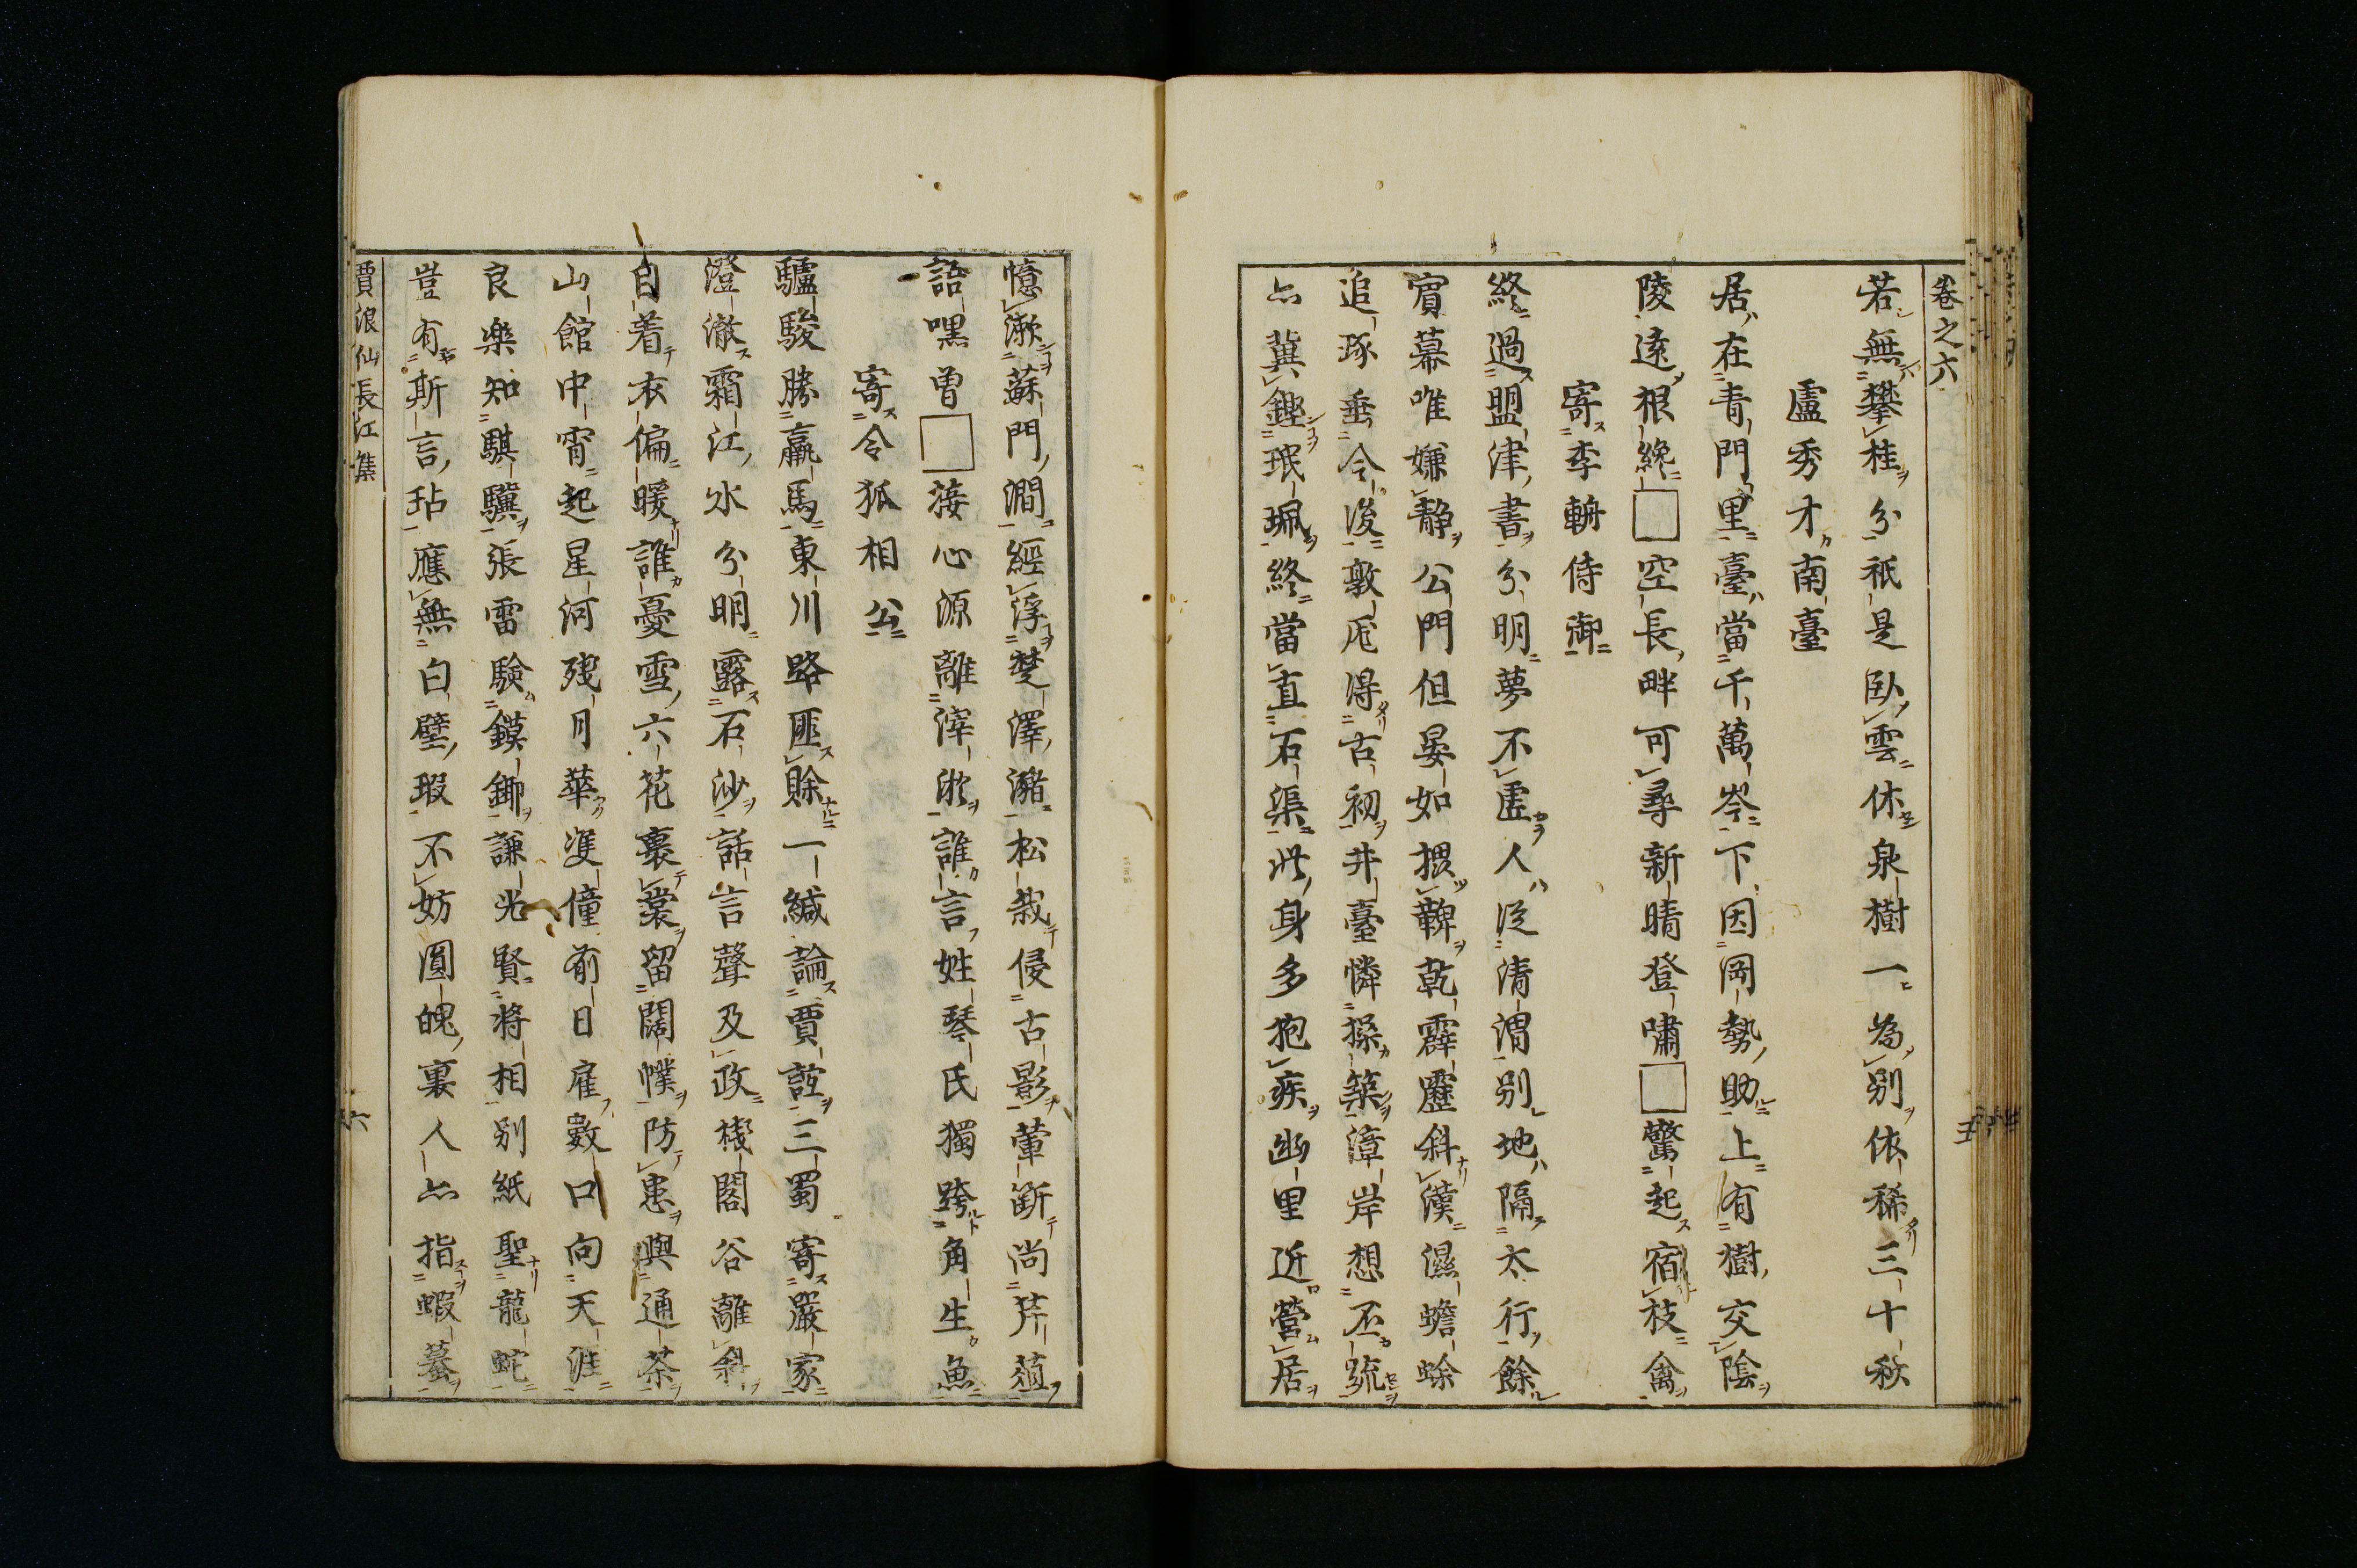 卷之六
若無攀桂分祇是臥雲休泉樹一為別依稀三十秋
盧秀才南臺
居在青門里臺當千萬岑下因岡勢助上有樹交陰
陵遠根纔□空長畔可尋新晴登嘯□驚起宿枝禽
寄李輈侍御
終過盟津書分明夢不虛人從清渭別地隔太行餘
賓幕唯嫌靜公門但晏如揋鞞乾霹靂斜漢濕蟾蜍
追琢垂今後敦厖得古初井臺憐操築漳岸想丕疏
亦冀鏗珉珮終當直石渠此身多抱疾幽里近營居
憶漱蘇門澗經浮楚澤瀦松栽侵古影葷斷尚芹葅
語嘿曽□接心源離滓淤誰言姓琴氏獨跨角生魚
寄令狐相公
驢駿勝羸馬東川路匪賒一緘論賈誼三蜀寄嚴家
澄澈霜江水分明露石沙話言聲及政棧閣谷離斜
自着衣偏暖誰憂雪六花裹裳留闊幞防患與通茶
山館中宵起星河殘月華㕠僮前日雇數口向天涯
良樂知騏驥張雷驗鏌鋣謙光賢將相別紙聖龍蛇
豈有斯言玷應無白璧瑕不妨圓魄裏人亦指蝦蟇
賈浪仙長江集
六